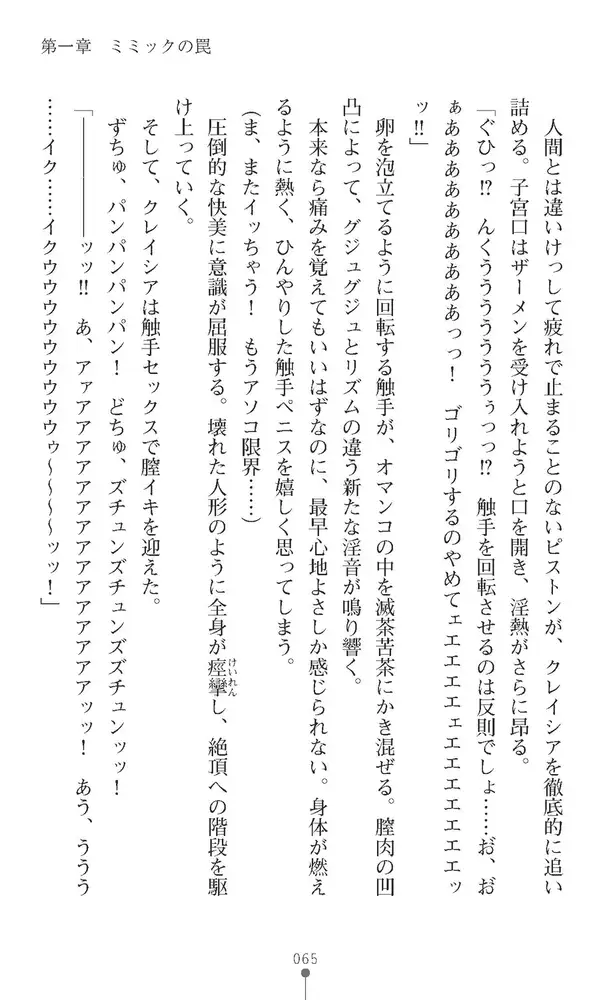 第一章　ミミックの罠
　人間とは違いけっして疲れで止まることのないピストンが、クレイシアを徹底的に追い
詰める。子宮口はザーメンを受け入れようと口を開き、淫熱がさらに昂る。
「ぐひっ!?　んくうううううぅっっ!?　触手を回転させるのは反則でしょ……お゛、お゛
ぁあああああああああっっ！　ゴリゴリするのやめてェエエエエェエエエエエエエッ
ッ!!」
　卵を泡立てるように回転する触手が、オマンコの中を滅茶苦茶にかき混ぜる。膣肉の凹
凸によって、グジュグジュとリズムの違う新たな淫音が鳴り響く。
　本来なら痛みを覚えてもいいはずなのに、最早心地よさしか感じられない。身体が燃え
るように熱く、ひんやりした触手ペニスを嬉しく思ってしまう。
（ま、またイッちゃう！　もうアソコ限界……）
　圧倒的な快美に意識が屈服する。壊れた人形のように全身が痙攣し、絶頂への階段を駆
け上っていく。
けいれん
　そして、クレイシアは触手セックスで膣イキを迎えた。
　ずちゅ、パンパンパンパン！　どちゅ、ズチュンズズチュンッッ！
「――――ッッ!!　あ、アァアアアアアアアアアアアアアアッッ！　あう、ううう
……イク……イクウウウウウウウウウゥ～～～～ッッ！」
065